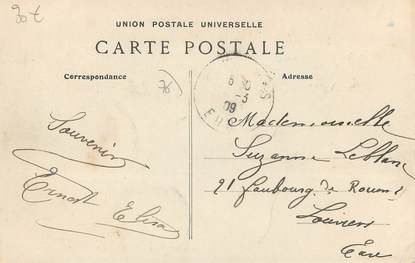 30 €
UNION POSTALE UNIVERSELLE
CARTE POSTALE
Correspondance
Adresse
Souvenir
Ernest Elisa
Mademoiselle
Suzanne Leblanc
21 faubourg de Rouen
Louviers
Eure